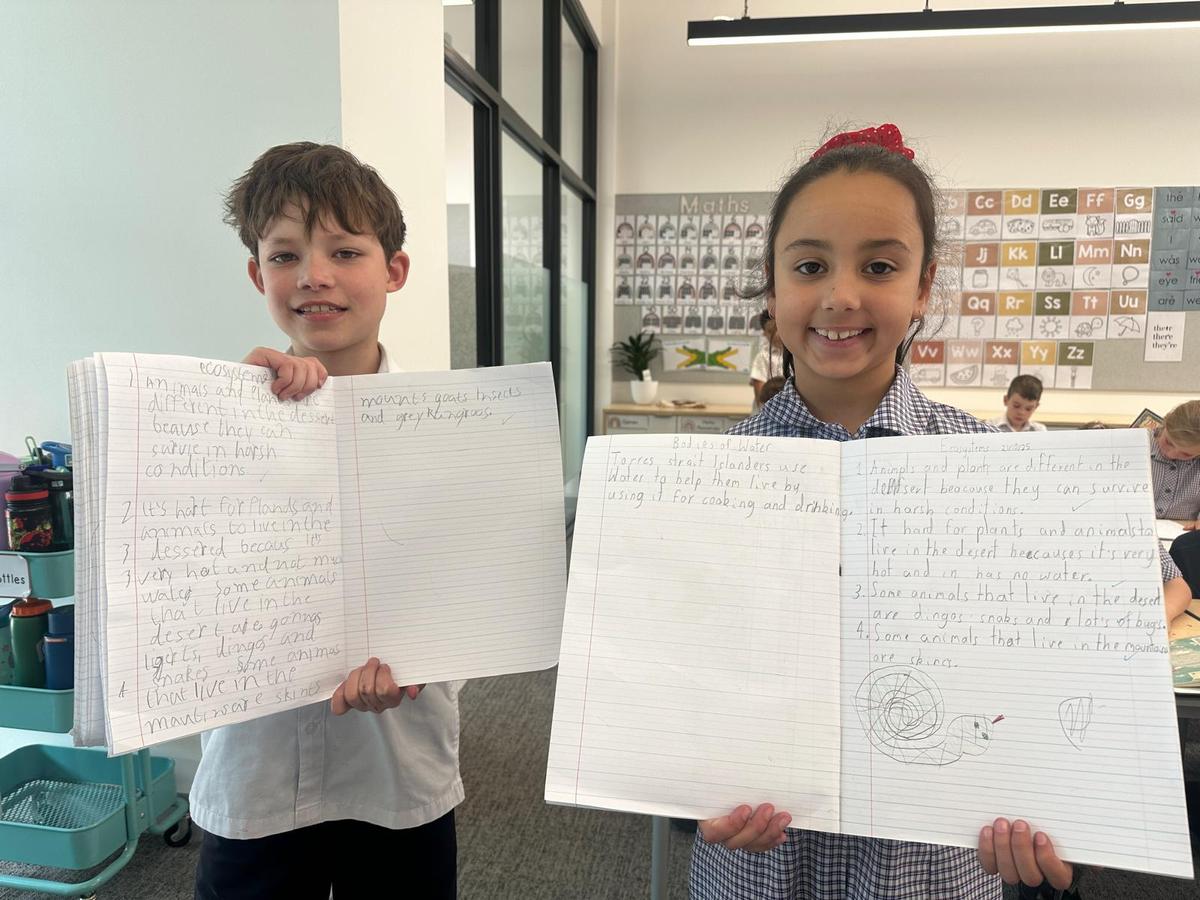 ecosystems
1 Animals and
different in the dessert
because they can
survie in harsh
conditions
2 It's hart for Plands and
animals to live in the
3 dessered becaus it's
3 very hot and not
water some animals
that live in the
desert are gonnas
lizerts, dingos and
snakes. some animas
4 that live in the
are skints
mounts goats Insects
and grey Kangroos.
Bodies of Water
Torres strait Islanders use
Water to help them live by
using it for cooking and drinking.
Ecosystems
1. Animals and plants are different in the
because they can survive
in harsh conditions.
2. It hard for plants and animals to
live in the desert because it's very
hot and in has no water.
3. Some animals that live in the desert
are dingos snabs and lot's of bugs.
4. Some animals that live in the mountains
are skincs.
Maths
Cc Dd Ee Ff Gg
Jj Kk Ll Mm Nn
Qq Rr Ss Tt Uu
Vv Ww Xx Yy Zz
the
said
I
was
eye
are
their
there
they're
ottles